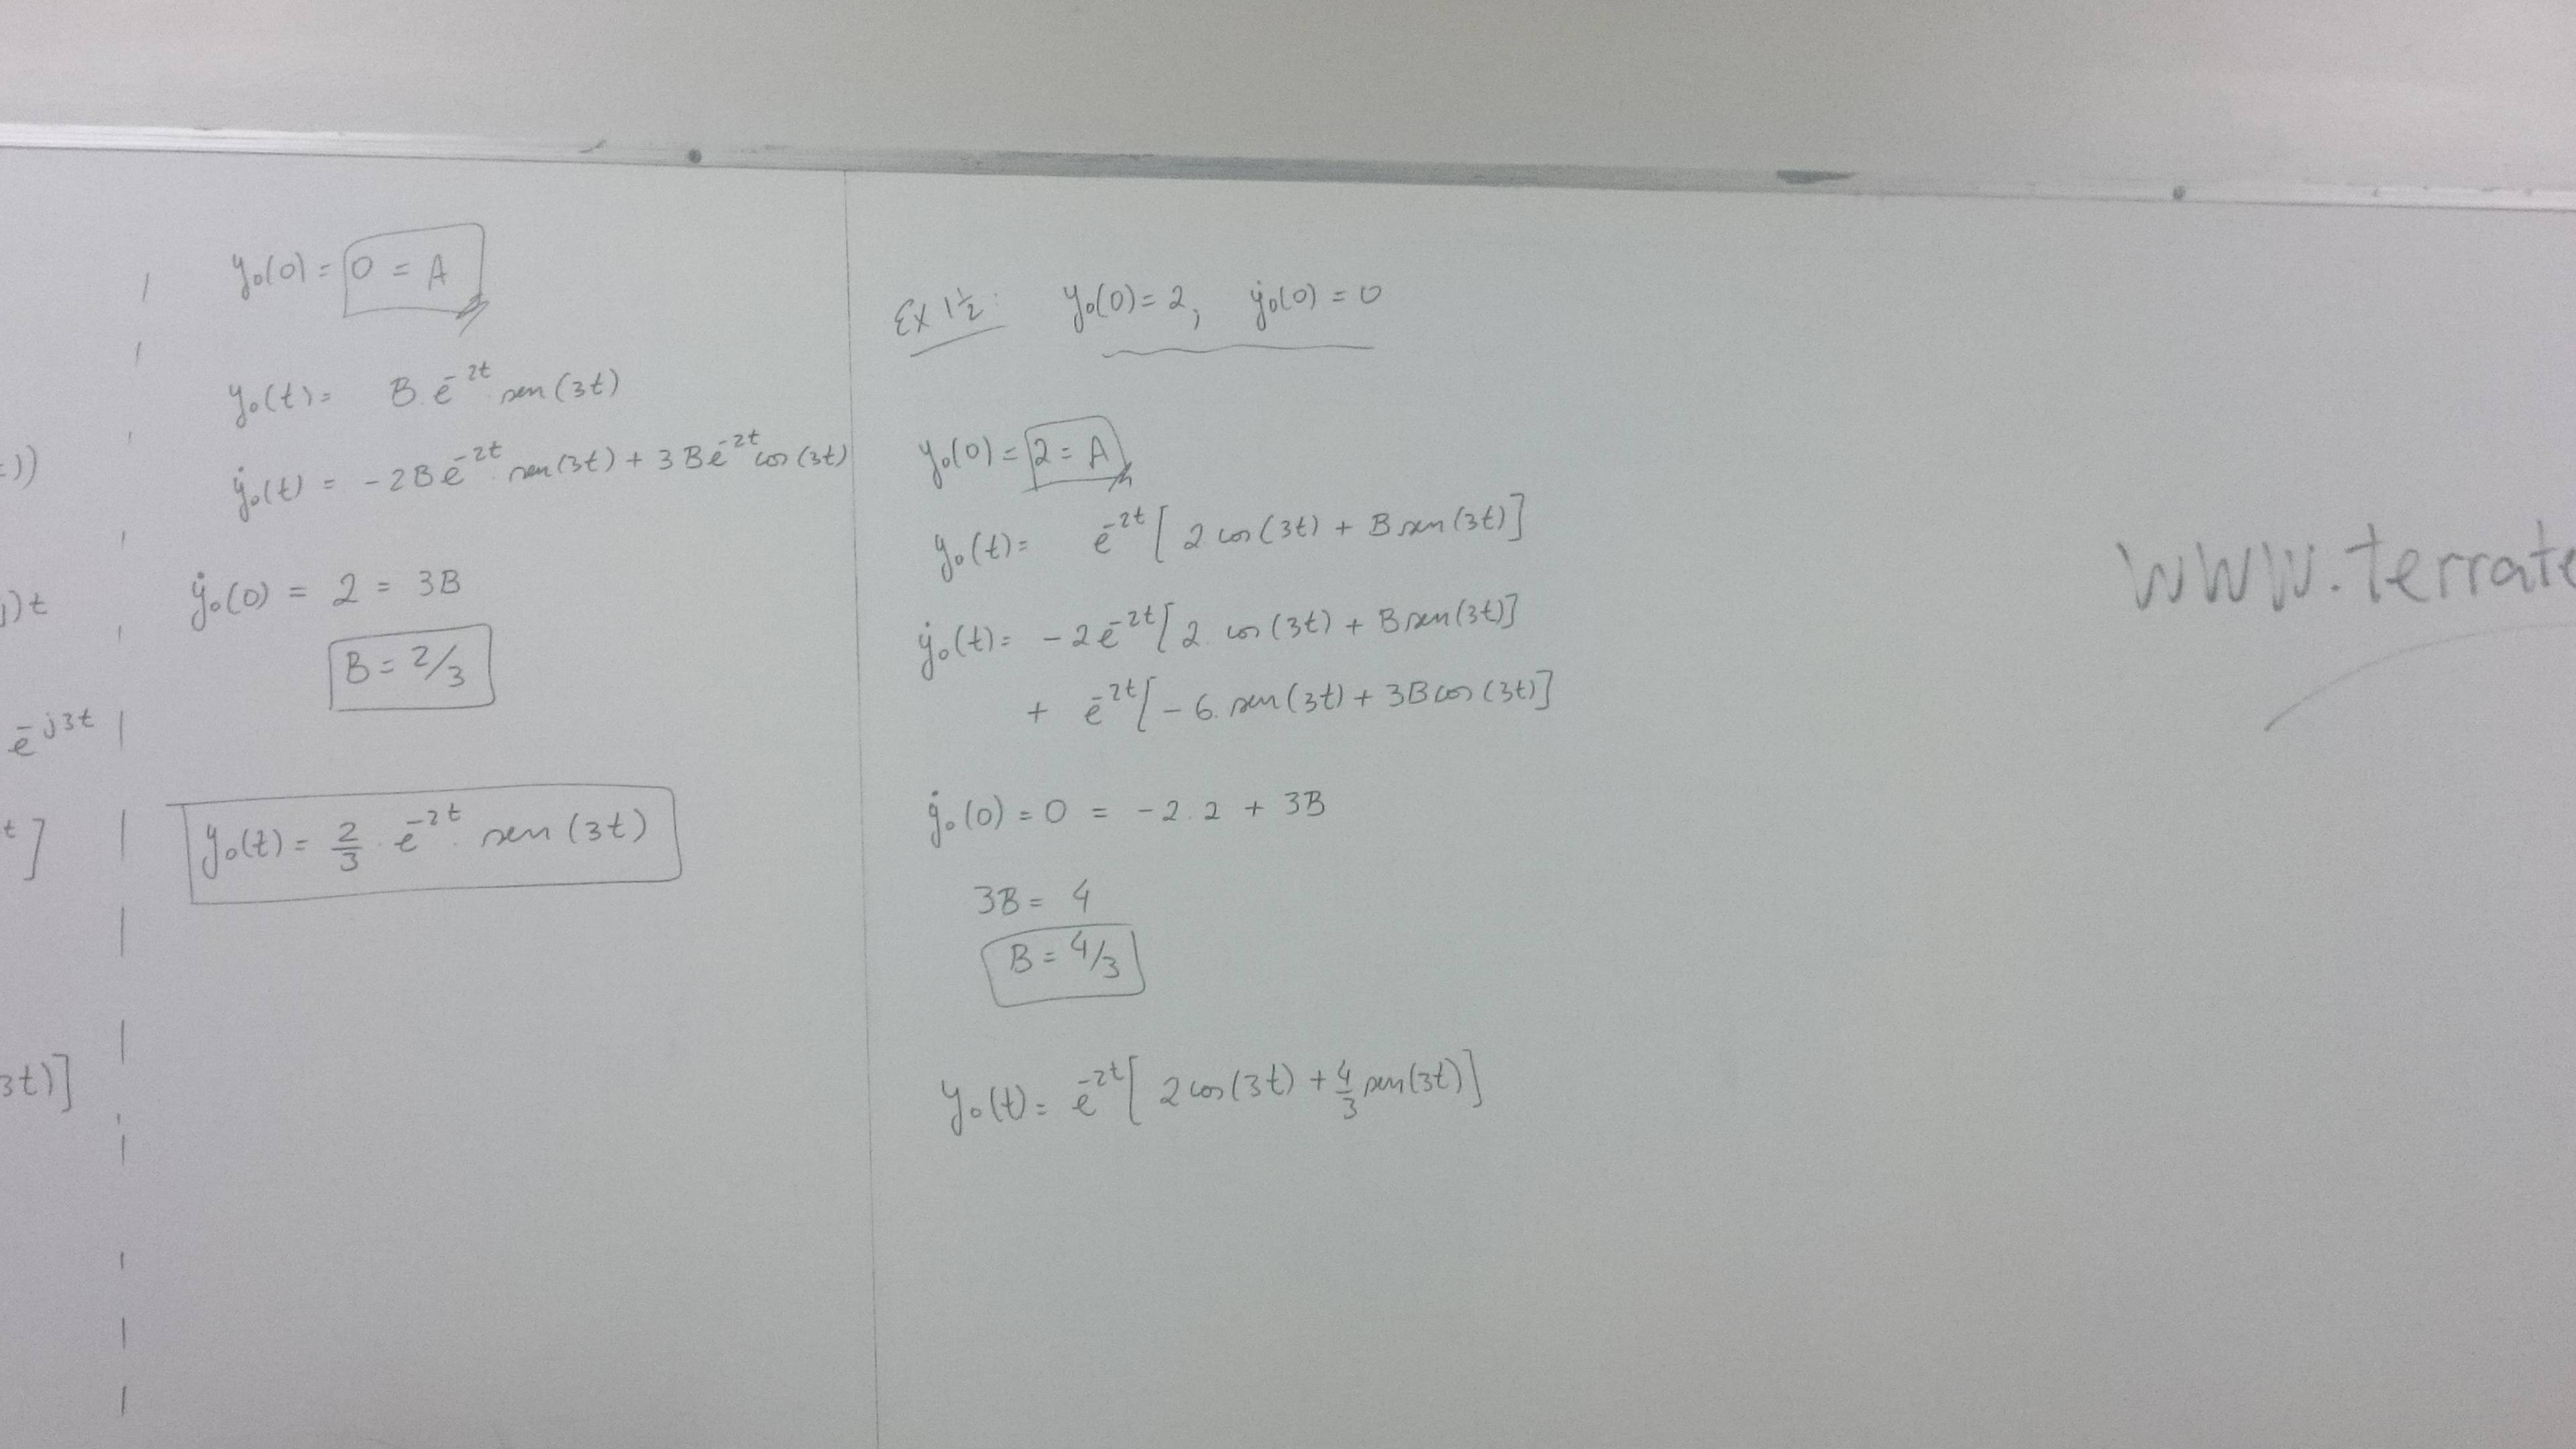 =))
)t
e^-j3t
t]
3t)]
y₀(0) = 0 = A
y₀(t) = B e^-2t sen(3t)
ẏ₀(t) = -2B e^-2t · sen(3t) + 3B e^-2t cos(3t)
ẏ₀(0) = 2 = 3B
B = 2/3
y₀(t) = 2/3 · e^-2t · sen(3t)
Ex 1½: y₀(0) = 2, ẏ₀(0) = 0
y₀(0) = 2 = A
y₀(t) = e^-2t [2 cos(3t) + B sen(3t)]
ẏ₀(t) = -2 e^-2t [2. cos(3t) + B sen(3t)]
+ e^-2t [-6. sen(3t) + 3B cos(3t)]
ẏ₀(0) = 0 = -2.2 + 3B
3B = 4
B = 4/3
y₀(t) = e^-2t [2 cos(3t) + 4/3 sen(3t)]
www.terrate